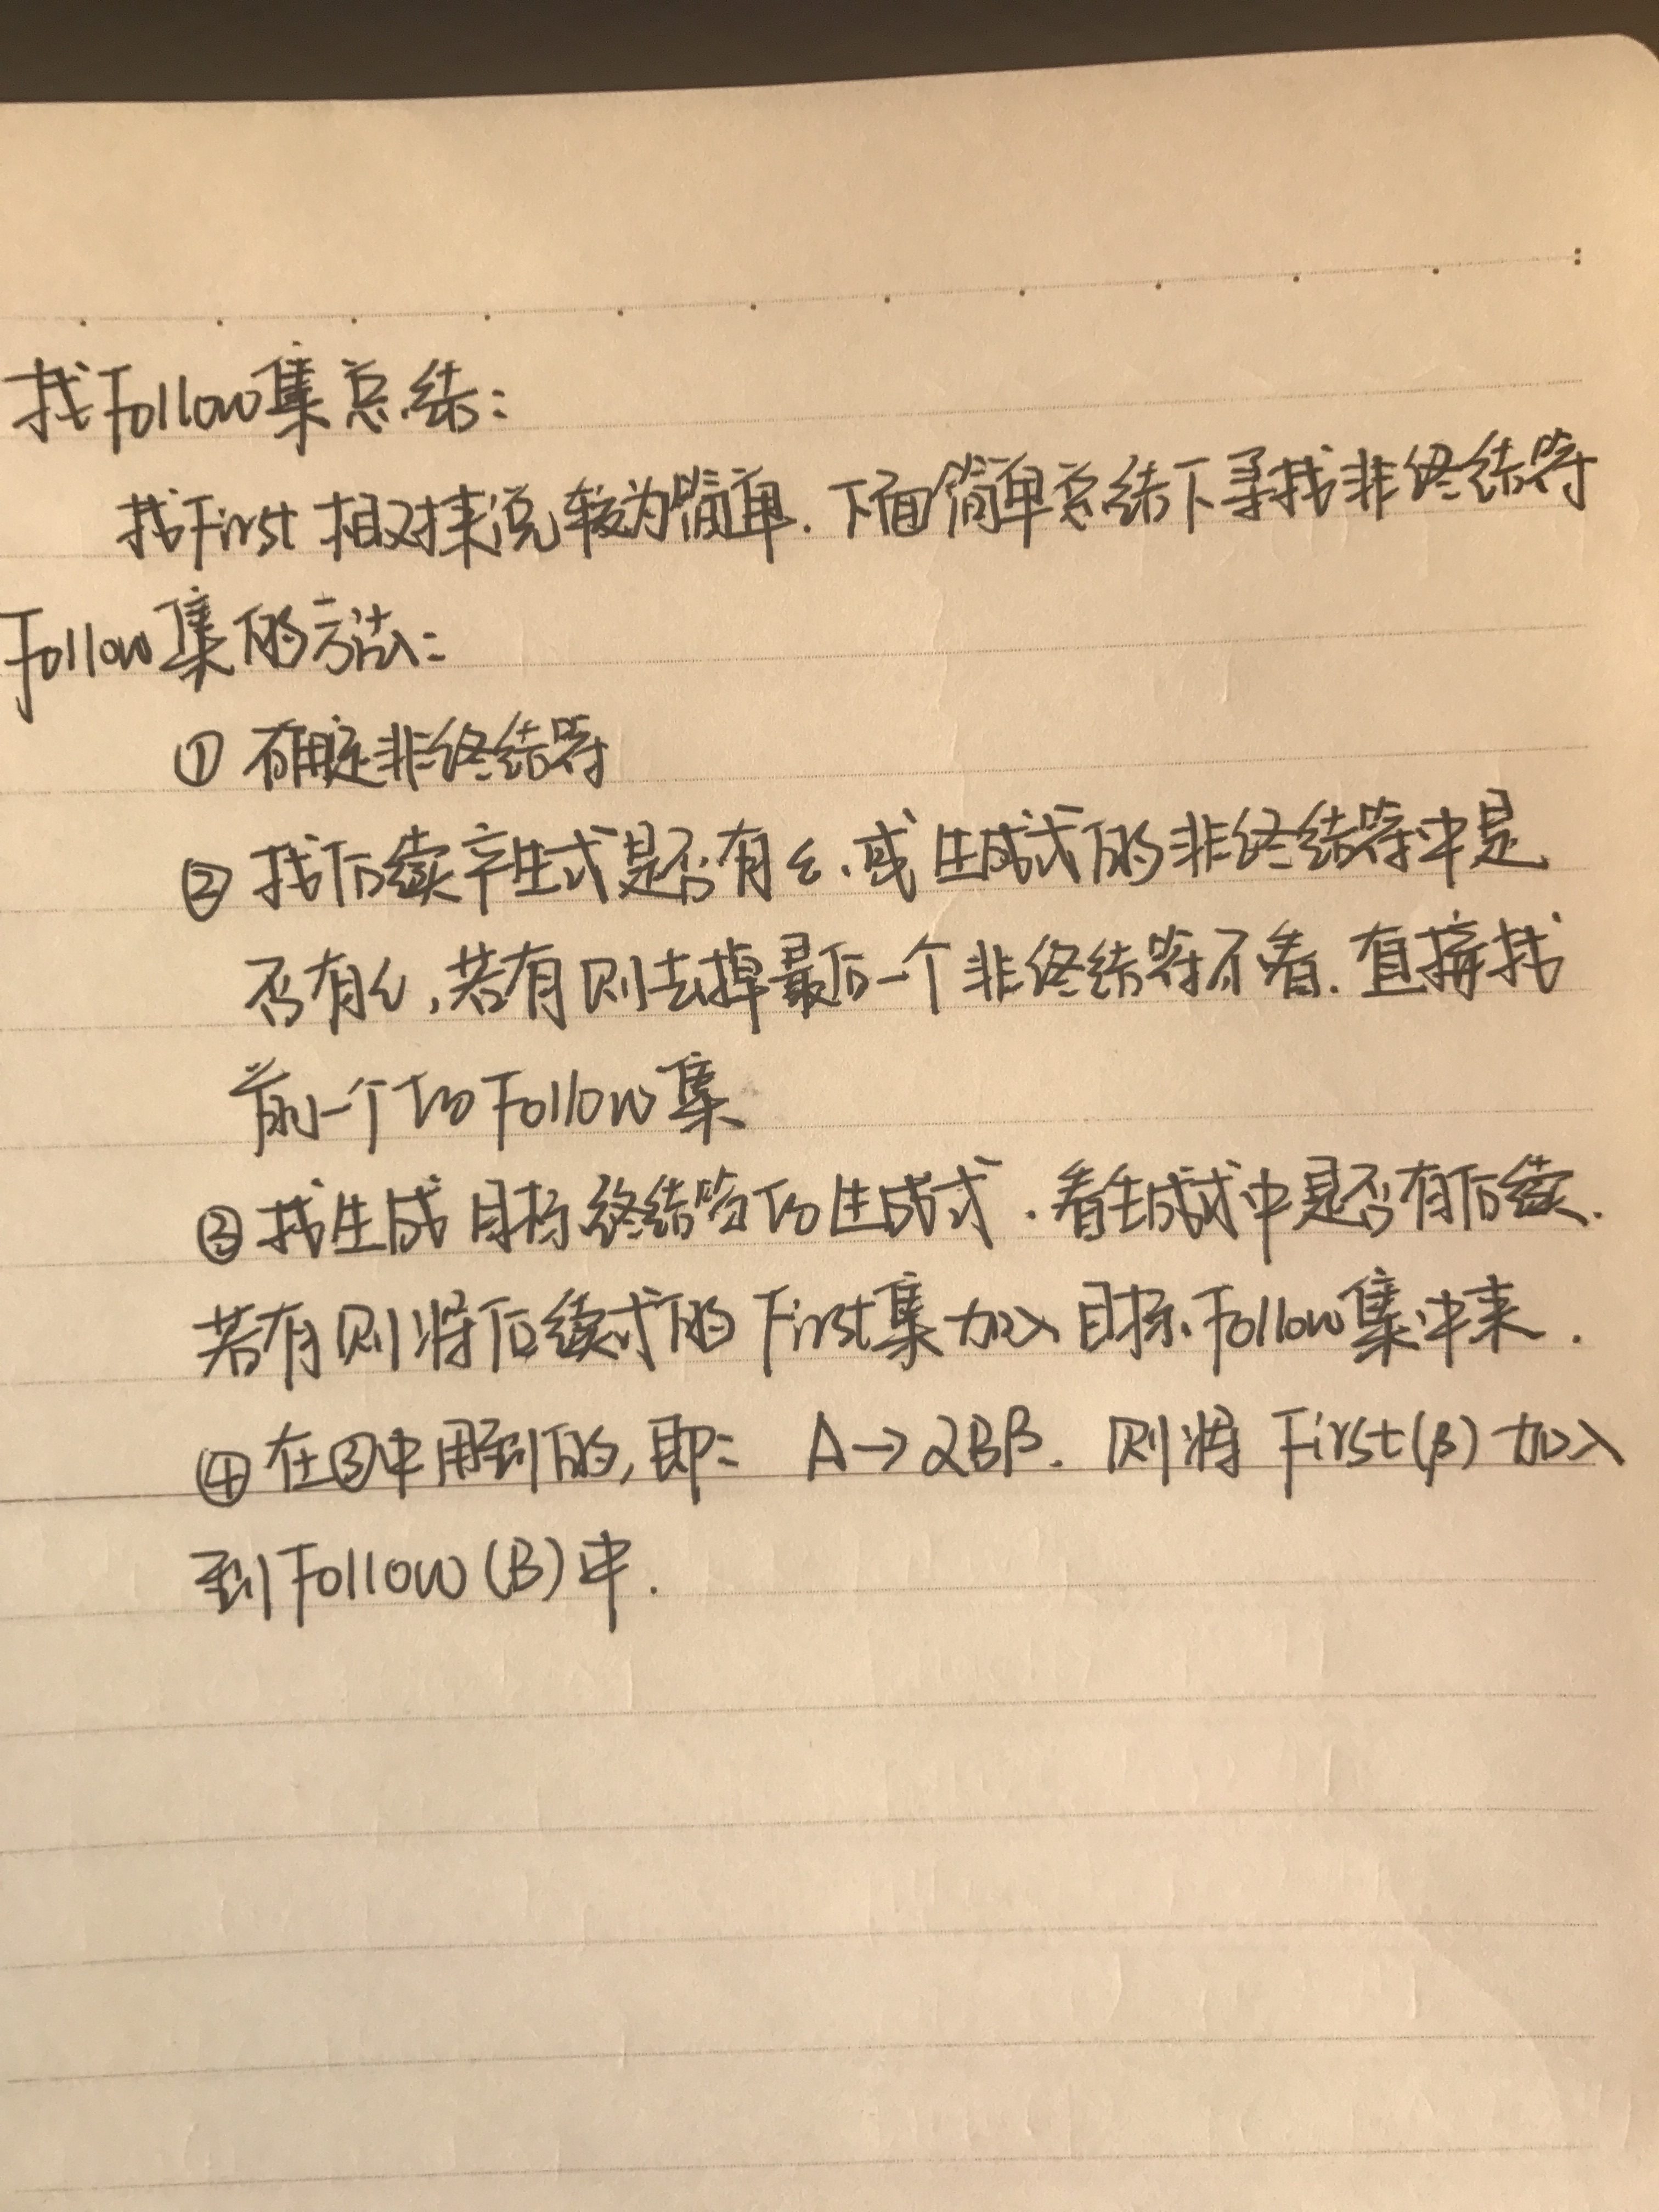 找Follow集总结:
找First 相对来说较为简单. 下面简单总结下寻找非终结符
Follow集的方法:
① 确定非终结符
② 找后续产生式是否有ε. 或生成式的非终结符中是
否有ε,若有则去掉最后一个非终结符不看. 直接找
前一个的Follow集
③ 找生成目标终结符的生成式. 看生成式中是否有后续.
若有则将后续式的First集加入目标Follow集中来.
④ 在③中用到的,即: A→αBβ. 则将 First(β) 加入
到Follow(B)中.